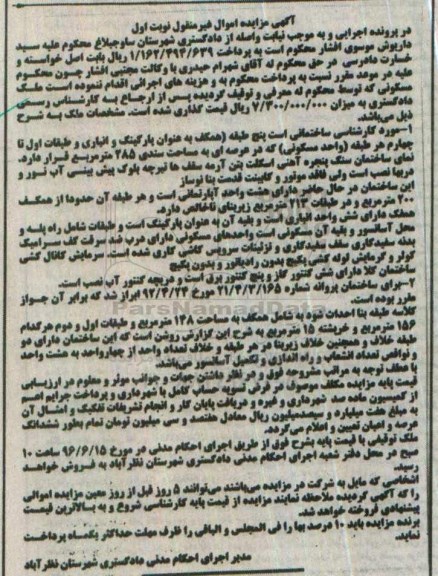 آگهی مزایده اموال غیرمنقول نوبت اول
در پرونده اجرایی و به موجب نیابت واصله از دادگستری شهرستان ساوجبلاغ محکوم علیه سید
داریوش موسوی افشار محکوم است به پرداخت ۱/۱۶۲/۴۹۴/۶۳۹ ریال بابت اصل خواسته و
خسارت دادرسی در حق محکوم له آقای شهرام حیدری با وکالت مجتبی افشار چون محکوم
علیه در موعد مقرر نسبت به پرداخت محکوم به و هزینه های اجرائی اقدام ننموده است ملک
مسکونی که توسط محکوم له معرفی و توقیف گردیده پس از ارجاع به کارشناس رسمی
دادگستری به میزان ۷/۳۰۰/۰۰۰/۰۰۰ ریال قیمت گذاری شده است. مشخصات ملک به شرح
ذیل می‌باشد.
۱-مورد کارشناسی ساختمانی است پنج طبقه (همکف به عنوان پارکینگ و انباری و طبقات اول تا
چهارم هر طبقه (واحد مسکونی) که در عرصه ای به مساحت سندی ۲۸۵ مترمربع قرار دارد.
نمای ساختمان سنگ پنجره آهنی اسکلت بتن آرمه سقف ها تیرچه بلوک پیش بینی آب نور و
دربها نصب است ولی فاقد موتور و کابینت قدمت بنا نوساز
این ساختمان در حال حاضر دارای هشت واحد آپارتمانی است و هر طبقه آن حدودا از همکف
۲۰۰ مترمربع و در طبقات ۲۱۳ مترمربع زیربنای ناخالص دارد.
همکف دارای شش واحد انباری است و بقیه آن به عنوان پارکینگ است و طبقات شامل راه پله و
محل آسانسور و بقیه آن مسکونی است واحدهای مسکونی دارای درب ضد سرقت کف سرامیک
بدنه سفیدکاری سقف سفیدکاری و تزئینات سرویس کاشی کاری شده است. سرمایش کانال کشی
کولر و گرمایش لوله کشی پکیج بدون رادیاتور و بدون پکیج
ساختمان کلا دارای شش کنتور گاز و پنج کنتور برق است و دریچه کنتور آب نصب است.
۲-برای ساختمان پروانه شماره ۲۱/۴/۳/۱۶۵ مورخ ۹۲/۴/۲۳ ابراز شد که برابر آن جواز
مقرر بوده است.
کلاسه طبقه بنا احداث شود به شامل همکف به مساحت ۱۴۸ مترمربع و طبقات اول و دوم هرکدام
۱۵۶ مترمربع و خرپشته ۱۵ مترمربع به شرح این گزارش روشن است که این ساختمان دارای دو
طبقه خلاف و همچنین خلاف زیربنا در هر طبقه و خلاف تعداد واحد از چهارواحد به هشت واحد
و نواقص تعداد انشعاب و راه اندازی و تکمیل آسانسور می‌باشد.
با عطف توجه به مراتب مشروحه فوق و در نظر داشتن جهات و جوانب موثر و معلوم در ارزیابی
قیمت پایه مزایده مکلف موصوف در فرض تسویه حساب کامل با شهرداری و پرداخت جرایم اعم
از کمیسیون ماده صد شهرداری و غیره و دریافت پایان کار و انجام تشریفات تفکیک و امثال آن
به مبلغ هفت میلیارد و سیصدمیلیون ریال معادل هفتصد و سی میلیون تومان تمام بطور ششدانگ
عرصه و اعیان تعیین و اعلام می‌گردد.
ملک توقیفی با قیمت پایه بشرح فوق از طریق اجرای احکام مدنی در مورخ ۹۶/۶/۱۵ ساعت ۱۰
صبح در محل دفتر شعبه اجرای احکام مدنی دادگستری شهرستان نظرآباد به فروش خواهد
رسید.
اشخاصی که مایل به شرکت در مزایده می‌باشند می‌توانند ۵ روز قبل از روز معین مزایده اموالی
را که آگهی گردیده ملاحظه نمایند مزایده از قیمت پایه کارشناسی شروع و به بالاترین قیمت
پیشنهادی فروخته خواهد شد.
برنده مزایده باید ۱۰ درصد بها را فی المجلس و الباقی را ظرف مهلت حداکثر یکماه پرداخت
نماید.
مدیر اجرای احکام مدنی دادگستری شهرستان نظرآباد
ParsNamadData